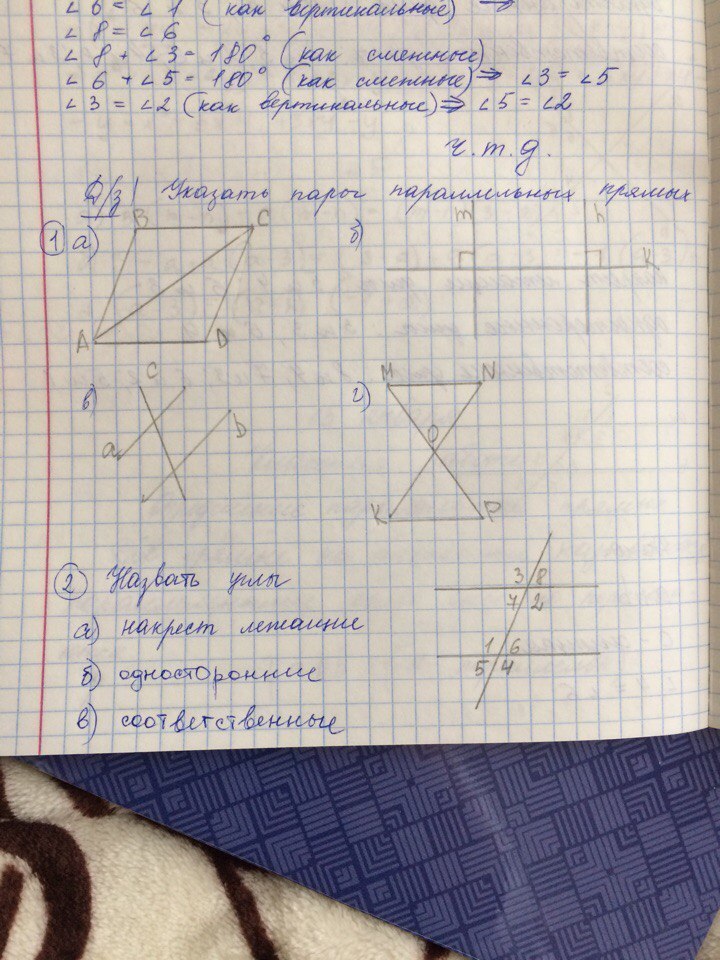 ∠6 = ∠1 (как вертикальные) ⇒
∠8 = ∠6
∠8 + ∠3 = 180° (как смежные)
∠6 + ∠5 = 180° (как смежные) ⇒ ∠3 = ∠5
∠3 = ∠2 (как вертикальные) ⇒ ∠5 = ∠2
ч.т.д.
Д/з| Указать пары параллельных прямых
1 а) B C A D
б) m n K
в) C a b
г) M N O K P
2 Назвать углы
а) накрест лежащие
б) односторонние
в) соответственные
3 8
7 2
1 6
5 4